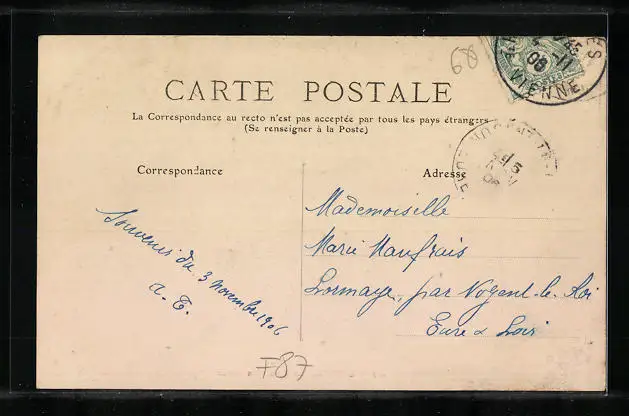 68
11
06
VIENNE
CARTE POSTALE
La Correspondance au recto n'est pas acceptée par tous les pays étrangers
(Se renseigner à la Poste)
Correspondance
Adresse
Mademoiselle
Marie Maufrais
Lormaye, par Nogent-le-Roi
Eure & Loir
Souvenir du 3 novembre 1906
A. T.
F87